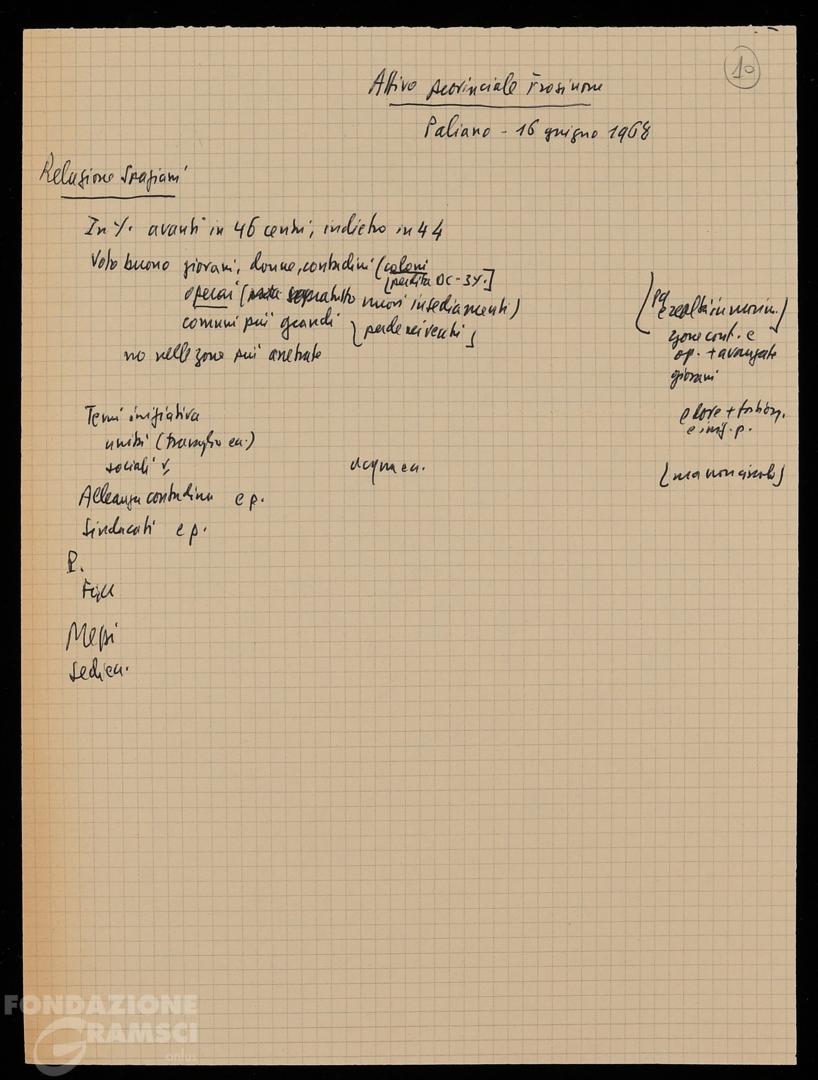 10
Attivo provinciale Frosinone
Paliano - 16 giugno 1968
Relazione Spaziani
In % avanti in 46 centri, indietro in 44
Voto buono giovani, donne, contadini (coloni
[perdita DC - 3%]
operai ( soprattutto nuovi insediamenti)
comuni più grandi [perde nei venti]
no nelle zone più arretrate
zone cont. e
op. + avanzate
giovani
Temi iniziativa
e dove +
e iniz. p.
unità ( ecc.)
sociali %
acqua ecc.
Alleanza contadina e p.
Sindacati e p.
P.
Fgci
Mezzi
Sedi ecc.
FONDAZIONE
GRAMSCI
onlus